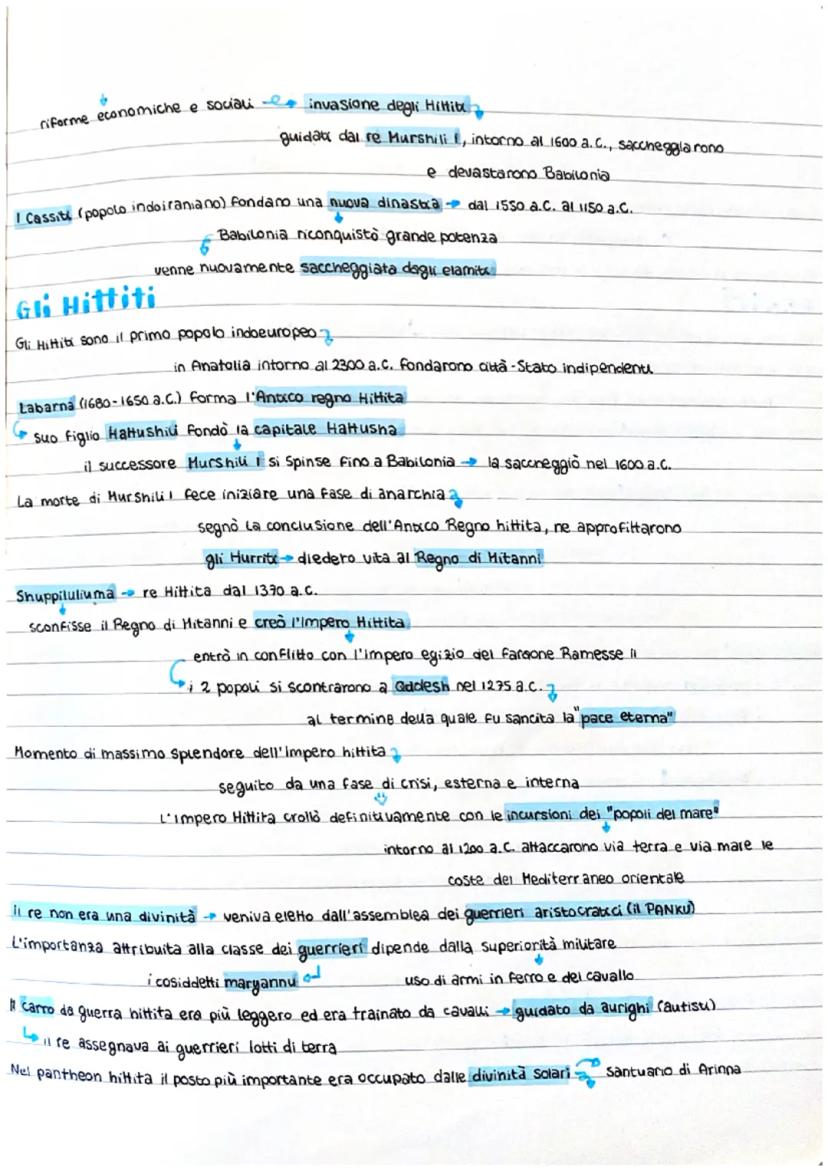 riforme economiche e sociali → invasione degli Hittiti
guidati dal re Murshili I, intorno al 1600 a.C., saccheggiarono
e devastarono Babilonia
I Cassiti (popolo indoiraniano) fondano una nuova dinastia → dal 1550 a.C. al 1150 a.C.
Babilonia riconquistò grande potenza
venne nuovamente saccheggiata dagli elamiti
Gli Hittiti
Gli Hittiti sono il primo popolo indoeuropeo
in Anatolia intorno al 2300 a.C. fondarono città-Stato indipendenti
Labarna (1680-1650 a.C.) forma l'Antico regno Hittita
suo figlio Hattushili fondò la capitale Hattusha
il successore Murshili I si spinse fino a Babilonia → la saccheggiò nel 1600 a.C.
La morte di Murshili I fece iniziare una fase di anarchia
segnò la conclusione dell'Antico Regno hittita, ne approfittarono
gli Hurriti → diedero vita al Regno di Mitanni
Shuppiluliuma → re Hittita dal 1370 a.C.
sconfisse il Regno di Mitanni e creò l'Impero Hittita
entrò in conflitto con l'impero egizio del faraone Ramesse II
i 2 popoli si scontrarono a Qadesh nel 1275 a.C.
al termine della quale fu sancita la "pace eterna"
Momento di massimo splendore dell'Impero hittita
seguito da una fase di crisi, esterna e interna
L'impero Hittita crollò definitivamente con le incursioni dei "popoli del mare"
intorno al 1200 a.C. attaccarono via terra e via mare le
coste del Mediterraneo orientale
Il re non era una divinità → veniva eletto dall'assemblea dei guerrieri aristocratici (il PANKU)
L'importanza attribuita alla classe dei guerrieri dipende dalla superiorità militare
i cosiddetti maryannu uso di armi in ferro e del cavallo
Il carro da guerra hittita era più leggero ed era trainato da cavalli → guidato da aurighi (autisti)
il re assegnava ai guerrieri lotti di terra
Nel pantheon hittita il posto più importante era occupato dalle divinità solari → Santuario di Arinna